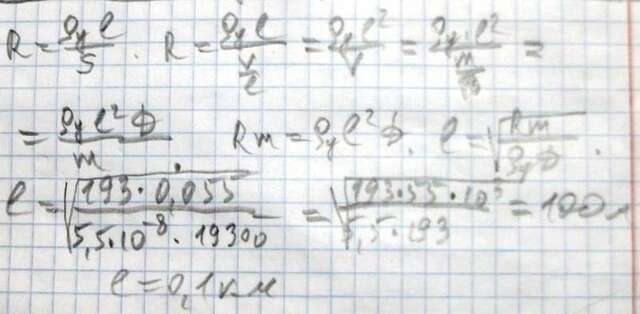 R = ρу l / S . R = ρу l / (V / l) = ρу l² / V = ρу l² / (m / ϕ) =
= ρу l² ϕ / m Rm = ρу l² ϕ . l = √(Rm / ρу ϕ) .
l = √(193 · 0,055 / 5,5 · 10⁻⁸ · 19300) = √(193 · 55 · 10³ / 5,5 · 193) = 100 м
l = 0,1 км